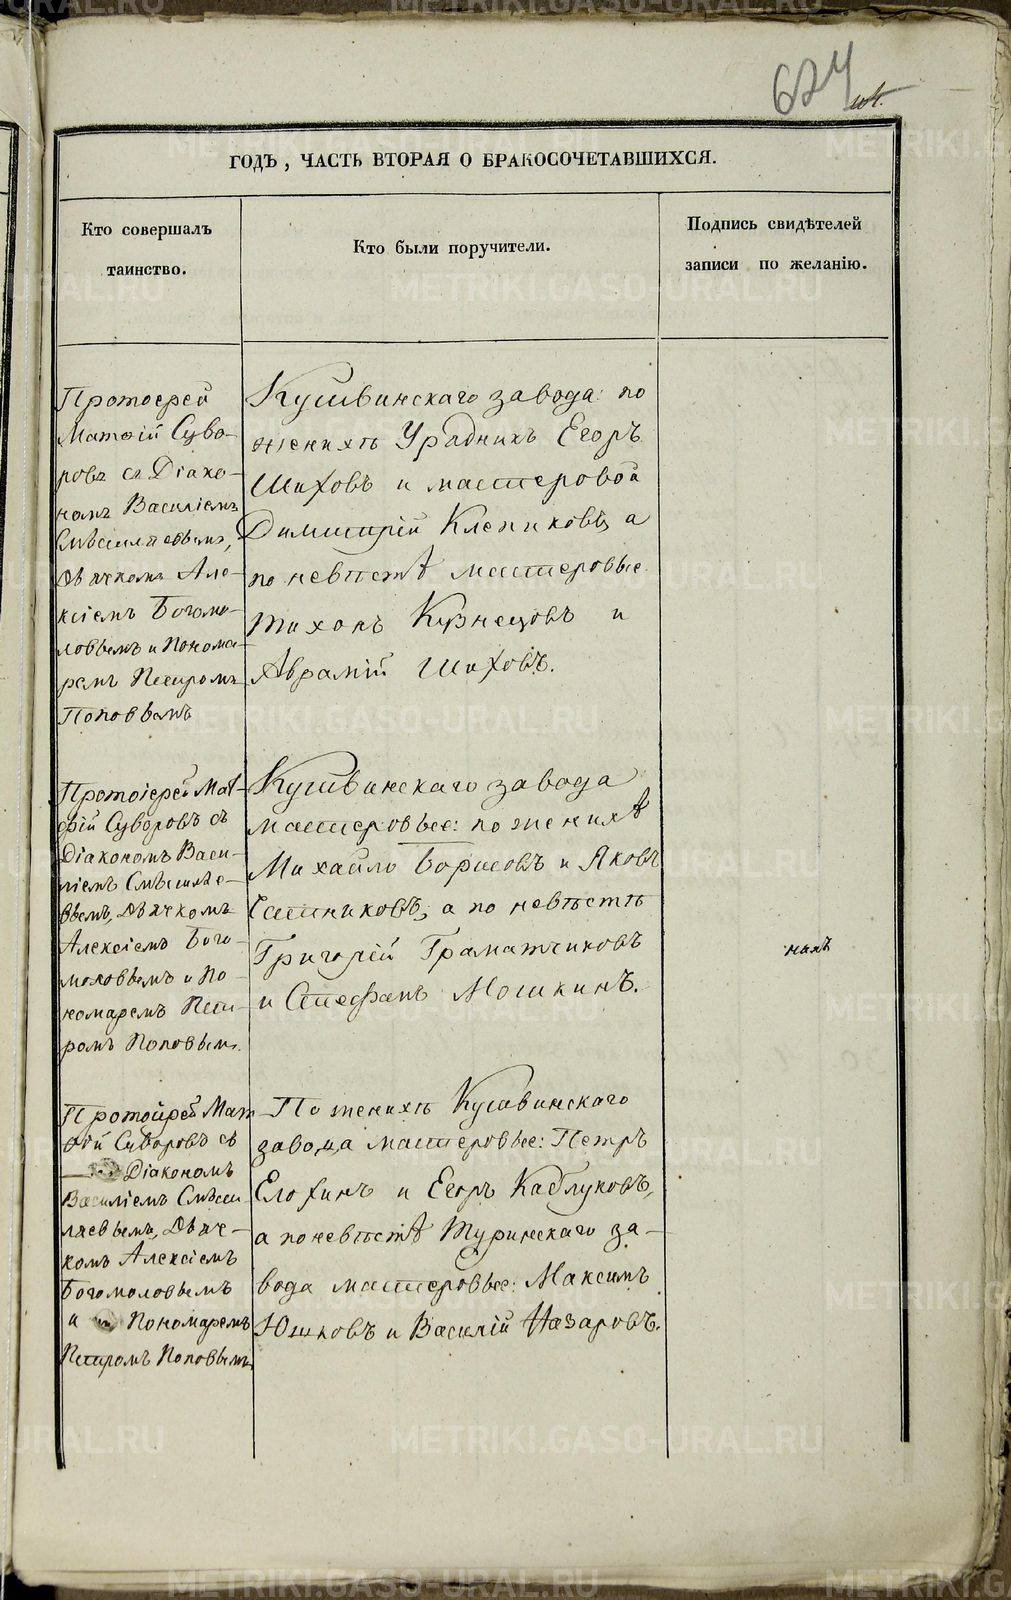 624
ГОДЪ, ЧАСТЬ ВТОРАЯ О БРАКОСОЧЕТАВШИХСЯ.
Кто совершалъ
таинство.
Кто были поручители.
Подпись свидѣтелей
записи по желанію.
Протоерей
Матѳій Суво-
ровъ съ Діако-
номъ Василіемъ
Смѣшляевымъ,
Дьячкомъ Але-
ксіемъ Богомо-
ловымъ и Понома-
ремъ Петромъ
Поповымъ
Кушвинскаго завода: по
женихѣ Урядникъ Егоръ
Шиховъ и мастеровой
Димитрій Клепиковъ, а
по невѣстѣ мастеровые
Тихонъ Кузнецовъ и
Аврамій Шиховъ.
Протоіерей Мат-
фій Суворовъ съ
Діакономъ Васи-
ліемъ Смѣшляе-
вымъ, Дьячкомъ
Алексіемъ Бого-
моловымъ и По-
номаремъ Пет-
ромъ Поповымъ.
Кушвинскаго завода
мастеровые: по женихѣ
Михайло Борисовъ и Яковъ
Ситниковъ, а по невѣстѣ
Григорій Граматчиковъ
и Стефанъ Мошкинъ.
нахъ
Протоірей Мат
ѳій Суворовъ съ
Діакономъ
Василіемъ Смѣш-
ляевымъ, Дьяч-
комъ Алексіемъ
Богомоловымъ
и Пономаремъ
Петромъ Поповымъ
По женихѣ Кушвинскаго
завода мастеровые: Петръ
Елохинъ и Егоръ Каблуковъ,
а по невѣстѣ Туринскаго за-
вода мастеровые: Максимъ
Юшковъ и Василій Назаровъ.
METRIKI.GASO-URAL.RU